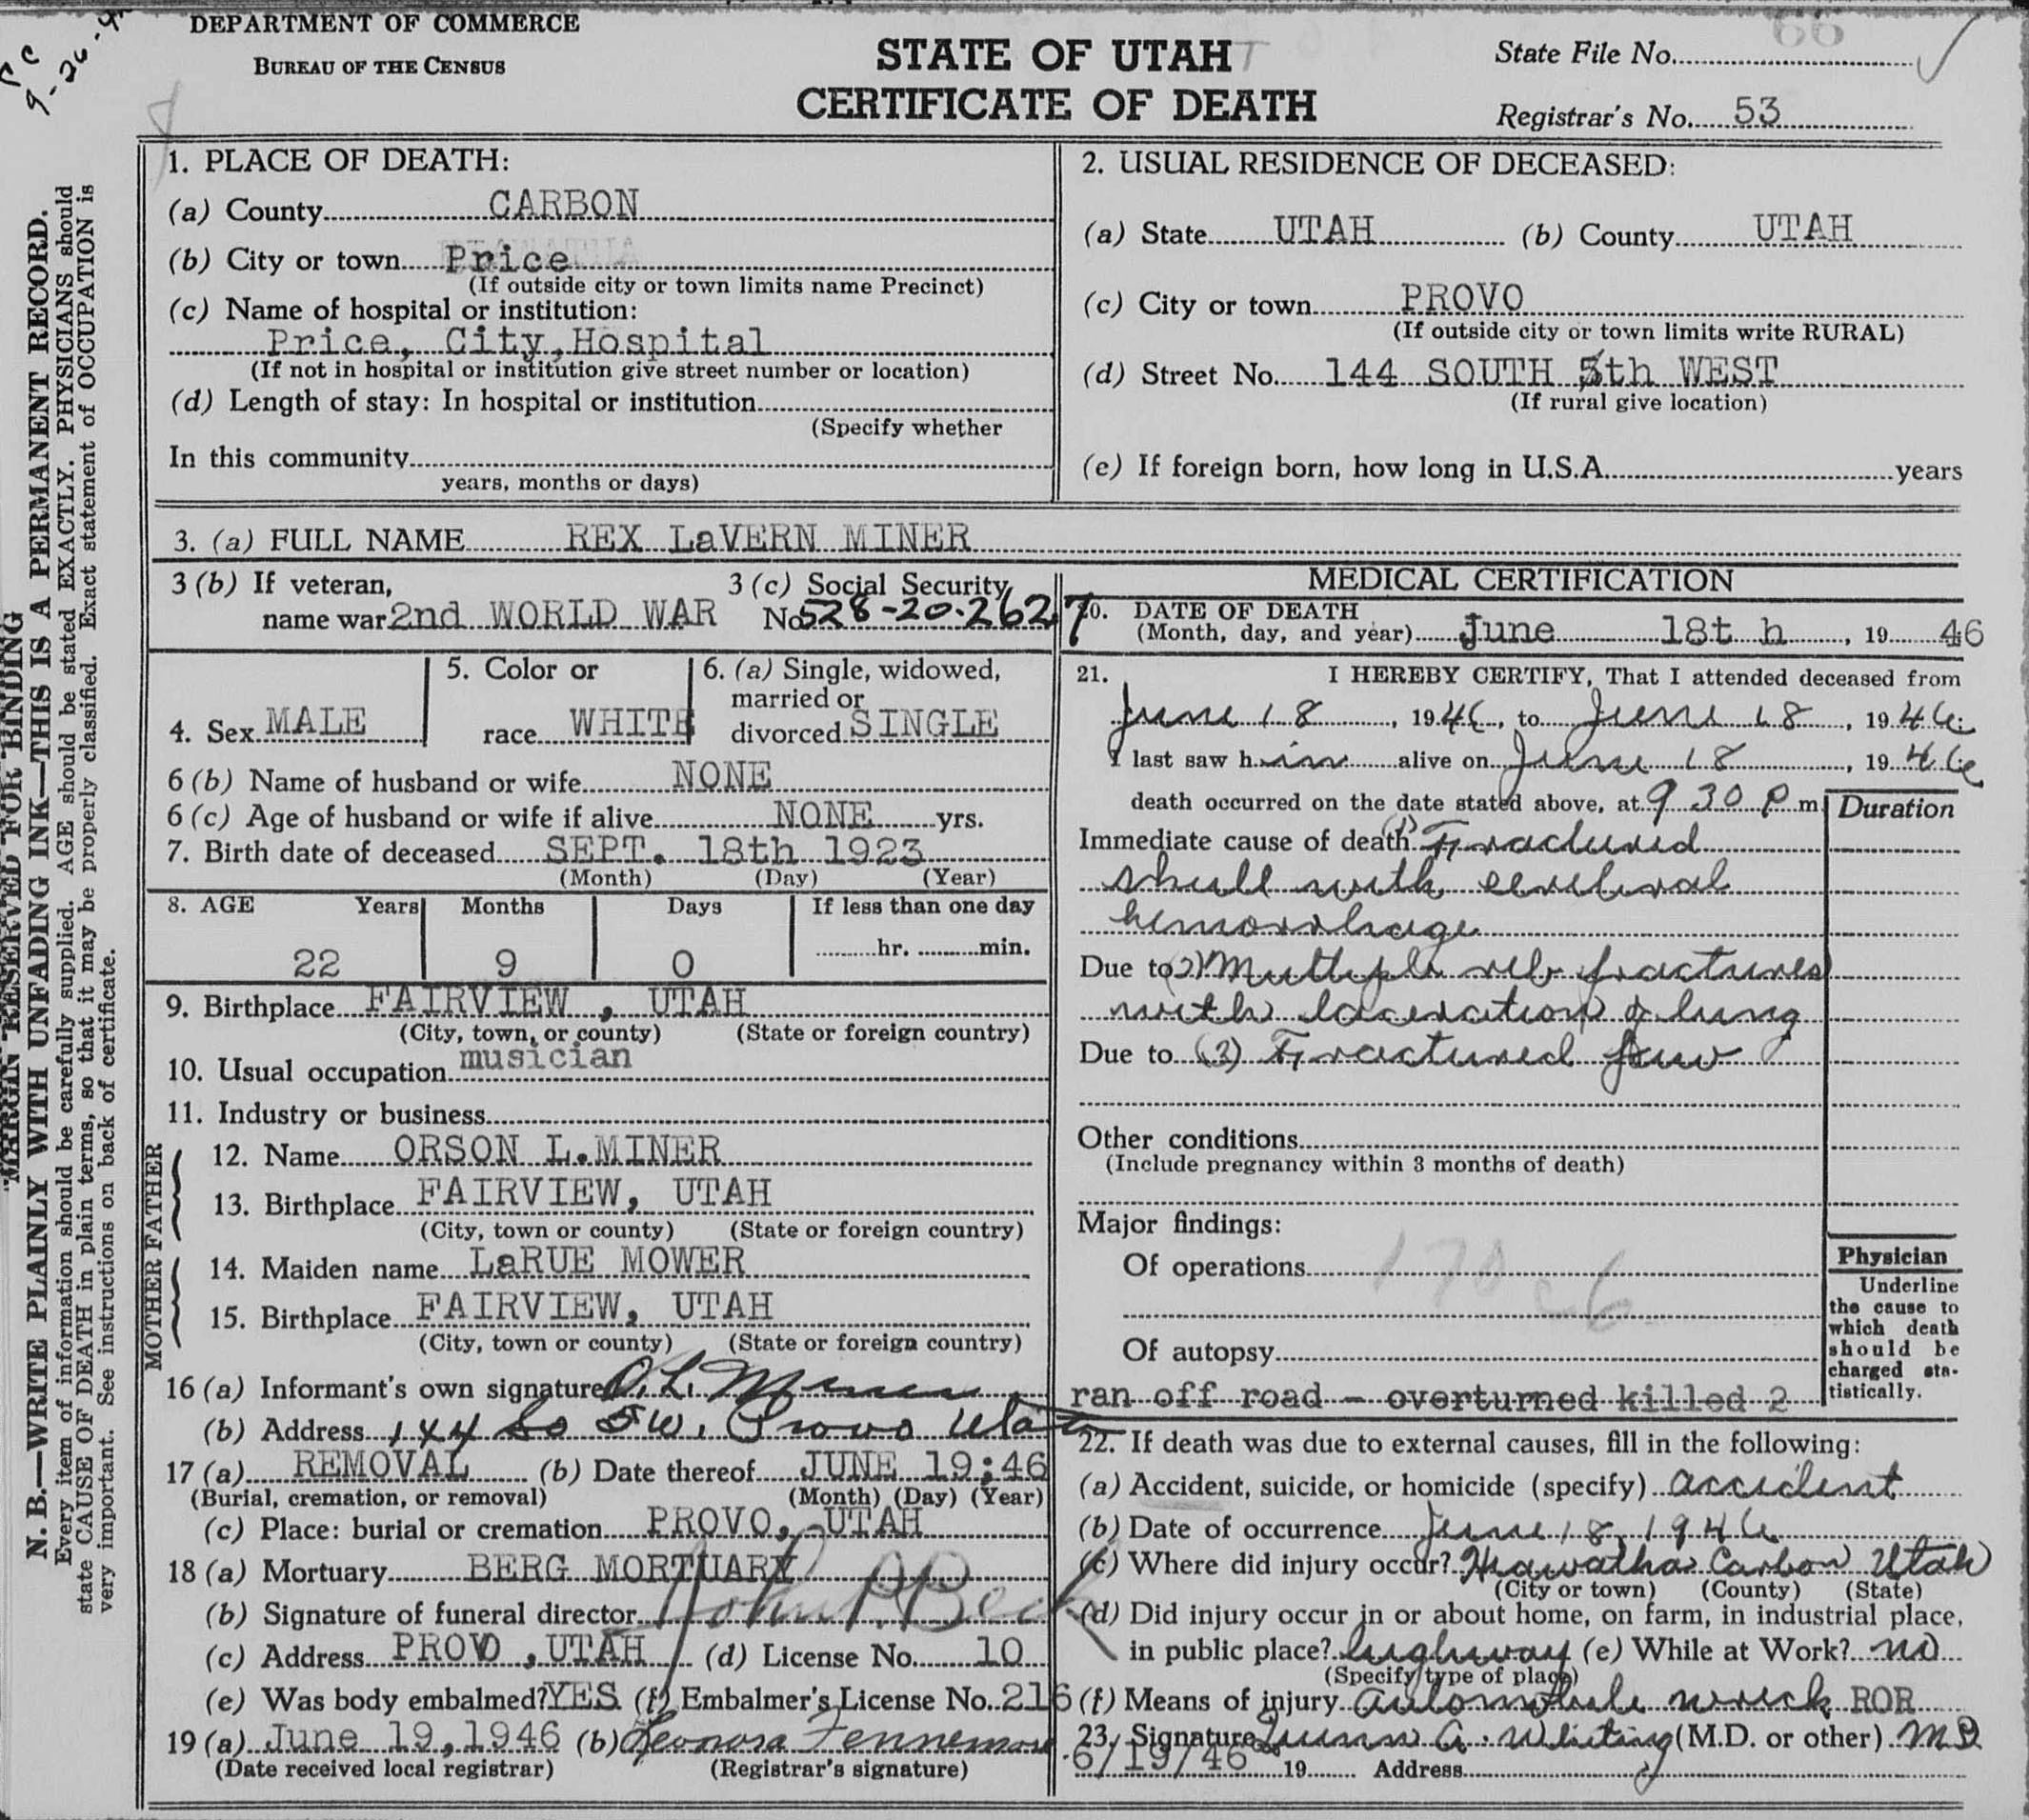 DEPARTMENT OF COMMERCE
BUREAU OF THE CENSUS
STATE OF UTAH
CERTIFICATE OF DEATH
State File No. 66
Registrar's No. 53
MARGIN RESERVED FOR BINDING
N. B.—WRITE PLAINLY WITH UNFADING INK—THIS IS A PERMANENT RECORD.
Every item of information should be carefully supplied. AGE should be stated EXACTLY. PHYSICIANS should
state CAUSE OF DEATH in plain terms, so that it may be properly classified. Exact statement of OCCUPATION is
very important. See instructions on back of certificate.
1. PLACE OF DEATH:
(a) County CARBON
(b) City or town Price
(If outside city or town limits name Precinct)
(c) Name of hospital or institution:
Price, City, Hospital
(If not in hospital or institution give street number or location)
(d) Length of stay: In hospital or institution
(Specify whether
In this community
years, months or days)
2. USUAL RESIDENCE OF DECEASED:
(a) State UTAH (b) County UTAH
(c) City or town PROVO
(If outside city or town limits write RURAL)
(d) Street No. 144 SOUTH 5th WEST
(If rural give location)
(e) If foreign born, how long in U.S.A. years
3. (a) FULL NAME REX LaVERN MINER
3 (b) If veteran,
name war 2nd WORLD WAR
3 (c) Social Security
No. 528-20-2627
4. Sex MALE
5. Color or
race WHITE
6. (a) Single, widowed,
married or
divorced SINGLE
6 (b) Name of husband or wife NONE
6 (c) Age of husband or wife if alive NONE yrs.
7. Birth date of deceased SEPT. 18th 1923
(Month) (Day) (Year)
8. AGE Years Months Days If less than one day
22 9 0 hr. min.
9. Birthplace FAIRVIEW , UTAH
(City, town, or county) (State or foreign country)
10. Usual occupation musician
11. Industry or business
FATHER
12. Name ORSON L. MINER
13. Birthplace FAIRVIEW, UTAH
(City, town or county) (State or foreign country)
MOTHER
14. Maiden name LaRUE MOWER
15. Birthplace FAIRVIEW, UTAH
(City, town or county) (State or foreign country)
16 (a) Informant's own signature O. L. Miner
(b) Address 144 So 5 W. Provo Utah
17 (a) REMOVAL (b) Date thereof JUNE 19:46
(Burial, cremation, or removal) (Month) (Day) (Year)
(c) Place: burial or cremation PROVO, UTAH
18 (a) Mortuary BERG MORTUARY
(b) Signature of funeral director
(c) Address PROVO , UTAH (d) License No. 10
(e) Was body embalmed? YES (f) Embalmer's License No. 216
19 (a) June 19, 1946 (b) Leonora Fennemore
(Date received local registrar) (Registrar's signature)
MEDICAL CERTIFICATION
20. DATE OF DEATH
(Month, day, and year) June 18t h , 19 46
21. I HEREBY CERTIFY, That I attended deceased from
June 18, 1946, to June 18, 1946
I last saw him alive on June 18, 1946
death occurred on the date stated above, at 9 30 P m.
Duration
Immediate cause of death (1) Fractured
skull with cerebral
hemorrhage
Due to (2) Multiple rib fractures
with laceration of lung
Due to (3) Fractured jaw
Other conditions
(Include pregnancy within 3 months of death)
Major findings:
Of operations
Of autopsy
Physician
Underline
the cause to
which death
should be
charged sta-
tistically.
ran off road - overturned killed 2
22. If death was due to external causes, fill in the following:
(a) Accident, suicide, or homicide (specify) accident
(b) Date of occurrence June 18, 1946
(c) Where did injury occur? Hiawatha Carbon Utah
(City or town) (County) (State)
(d) Did injury occur in or about home, on farm, in industrial place,
in public place? highway (e) While at Work? no
(Specify type of place)
(f) Means of injury automobile wreck ROR
23. Signature Quinn A. Whiting (M.D. or other) MD
6/19/46 19 Address